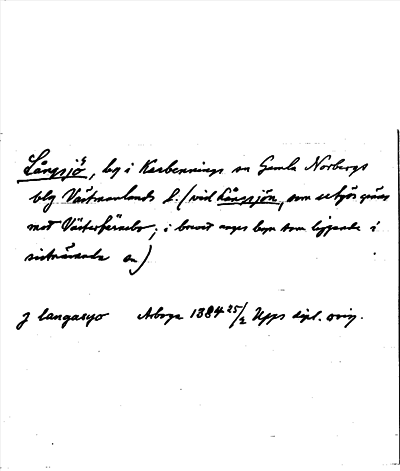 Långsjö, by i Karbennings sn Gamla Norbergs
blg Västmanlands l. (vid Långsjön, som utgör gräns
mot Västerfärnebo; i brevet anges byn som liggande i
sistnämnda sn)
j langasyo Arboga 1384 25/2 Upps dipl. orig.